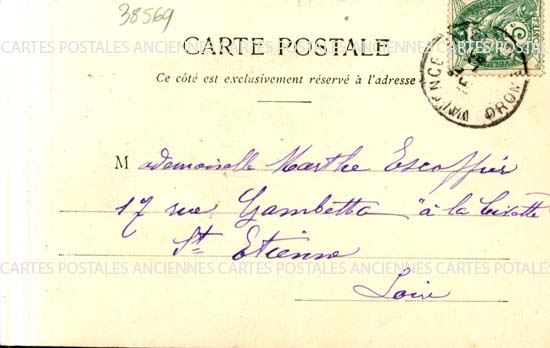 38569
CARTES POSTALES ANCIENNES CARTES POSTALES ANCIENNES CARTES POSTALES
CARTE POSTALE
Ce côté est exclusivement réservé à l'adresse
VALENCE DROME
Mademoiselle Marthe Escoffier
17 rue Gambetta "à la
St Etienne
CARTES POSTALES ANCIENNES CARTES POSTALES ANCIENNES CARTES POTALES
Loire